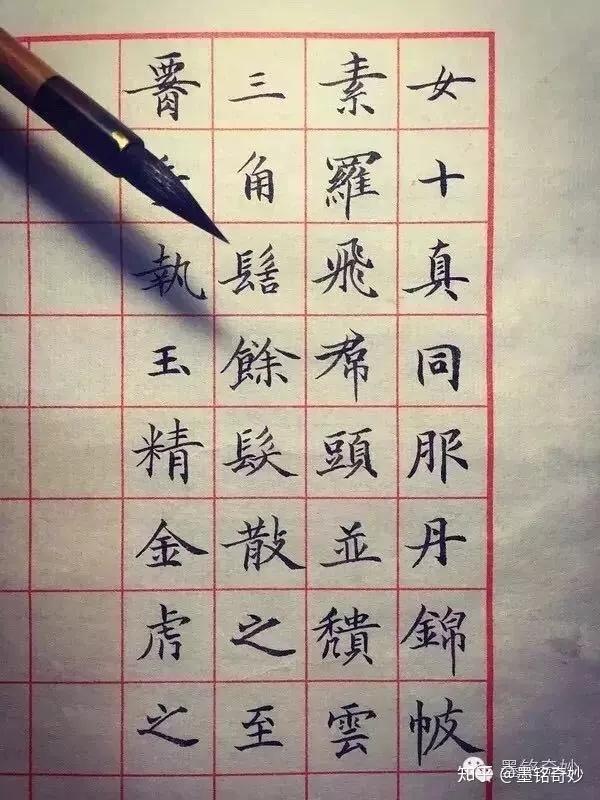 女十真同服丹錦帔
素羅飛帬頭並穨雲
三角髻餘髮散之至
腰執玉精金虎之
知乎 @墨铭奇妙
墨铭奇妙